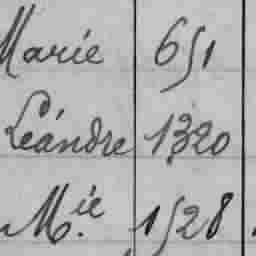 Marie 651
Léandre 1320
M.ie 1528